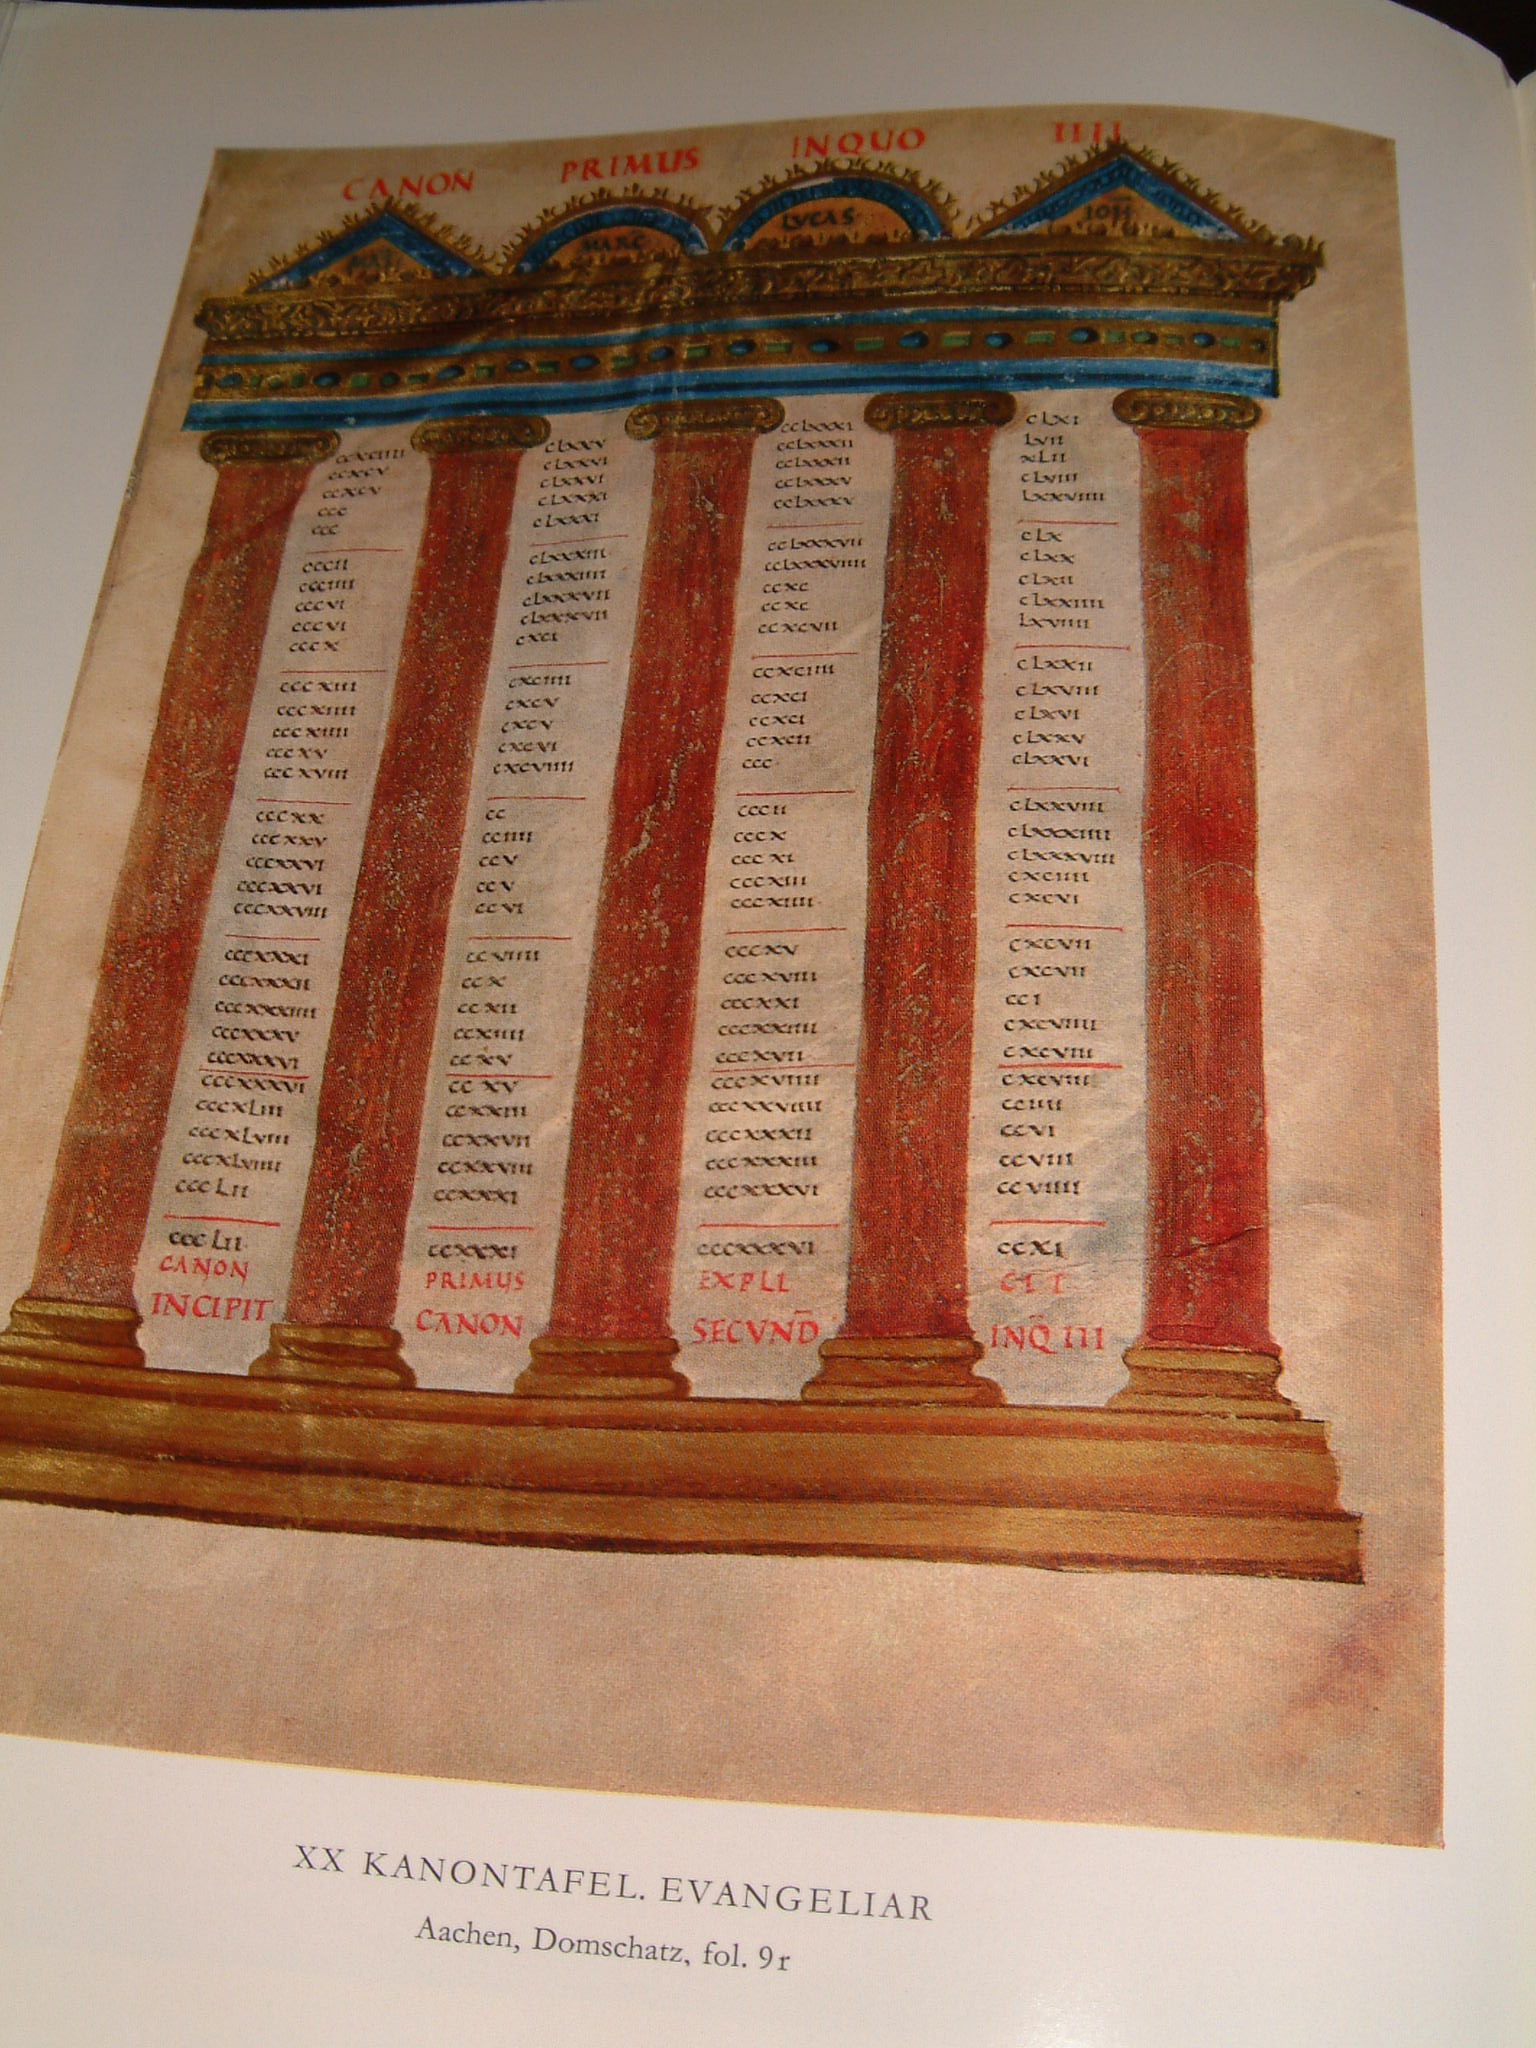 CANON PRIMUS INQUO IIII
MARC LVCAS IOH
ccxciiii clxxv cclxxxi clxi
ccxcv clxxvi cclxxxii lvii
ccxcv clxxvi cclxxxii xlii
ccc clxxxi cclxxxv clviii
ccc clxxxi cclxxxv lxxviiii
cccii clxxxiii cclxxxvii clx
ccciiii clxxxiiii cclxxxviiii clxx
cccvi clxxxvii ccxc clxii
cccvi clxxxvii ccxc clxxiiii
cccx cxci ccxcvii lxviiii
cccxiii cxciiii ccxciiii clxxii
cccxiiii cxcv ccxci clxviii
cccxiiii cxcv ccxci clxvi
cccxv cxcvi ccxcii clxxv
cccxviii cxcviiii ccc clxxvi
cccxx cc cccii clxxviii
cccxxv cciiii cccx clxxxiiii
cccxxvi ccv cccxi clxxxviii
cccxxvi ccv cccxiii cxciiii
cccxxviii ccvi cccxiiii cxcvi
cccxxxi ccviiii cccxv cxcvii
cccxxxii ccx cccxviii cxcvii
cccxxxiiii ccxii cccxxi cci
cccxxxv ccxiiii cccxxiiii cxcviiii
cccxxxvi ccxv cccxvii cxcviii
cccxxxvi ccxv cccxviiii cxcviii
cccxliii ccxxiii cccxxviiii cciiii
cccxlviii ccxxvii cccxxxii ccvi
cccxlviiii ccxxviii cccxxxiii ccviii
ccclii ccxxxi cccxxxvi ccviiii
ccclii ccxxxi cccxxxvi ccxi
CANON PRIMUS EXPLI CIT
INCIPIT CANON SECVND̅ INQ̅ III
XX KANONTAFEL. EVANGELIAR
Aachen, Domschatz, fol. 9r